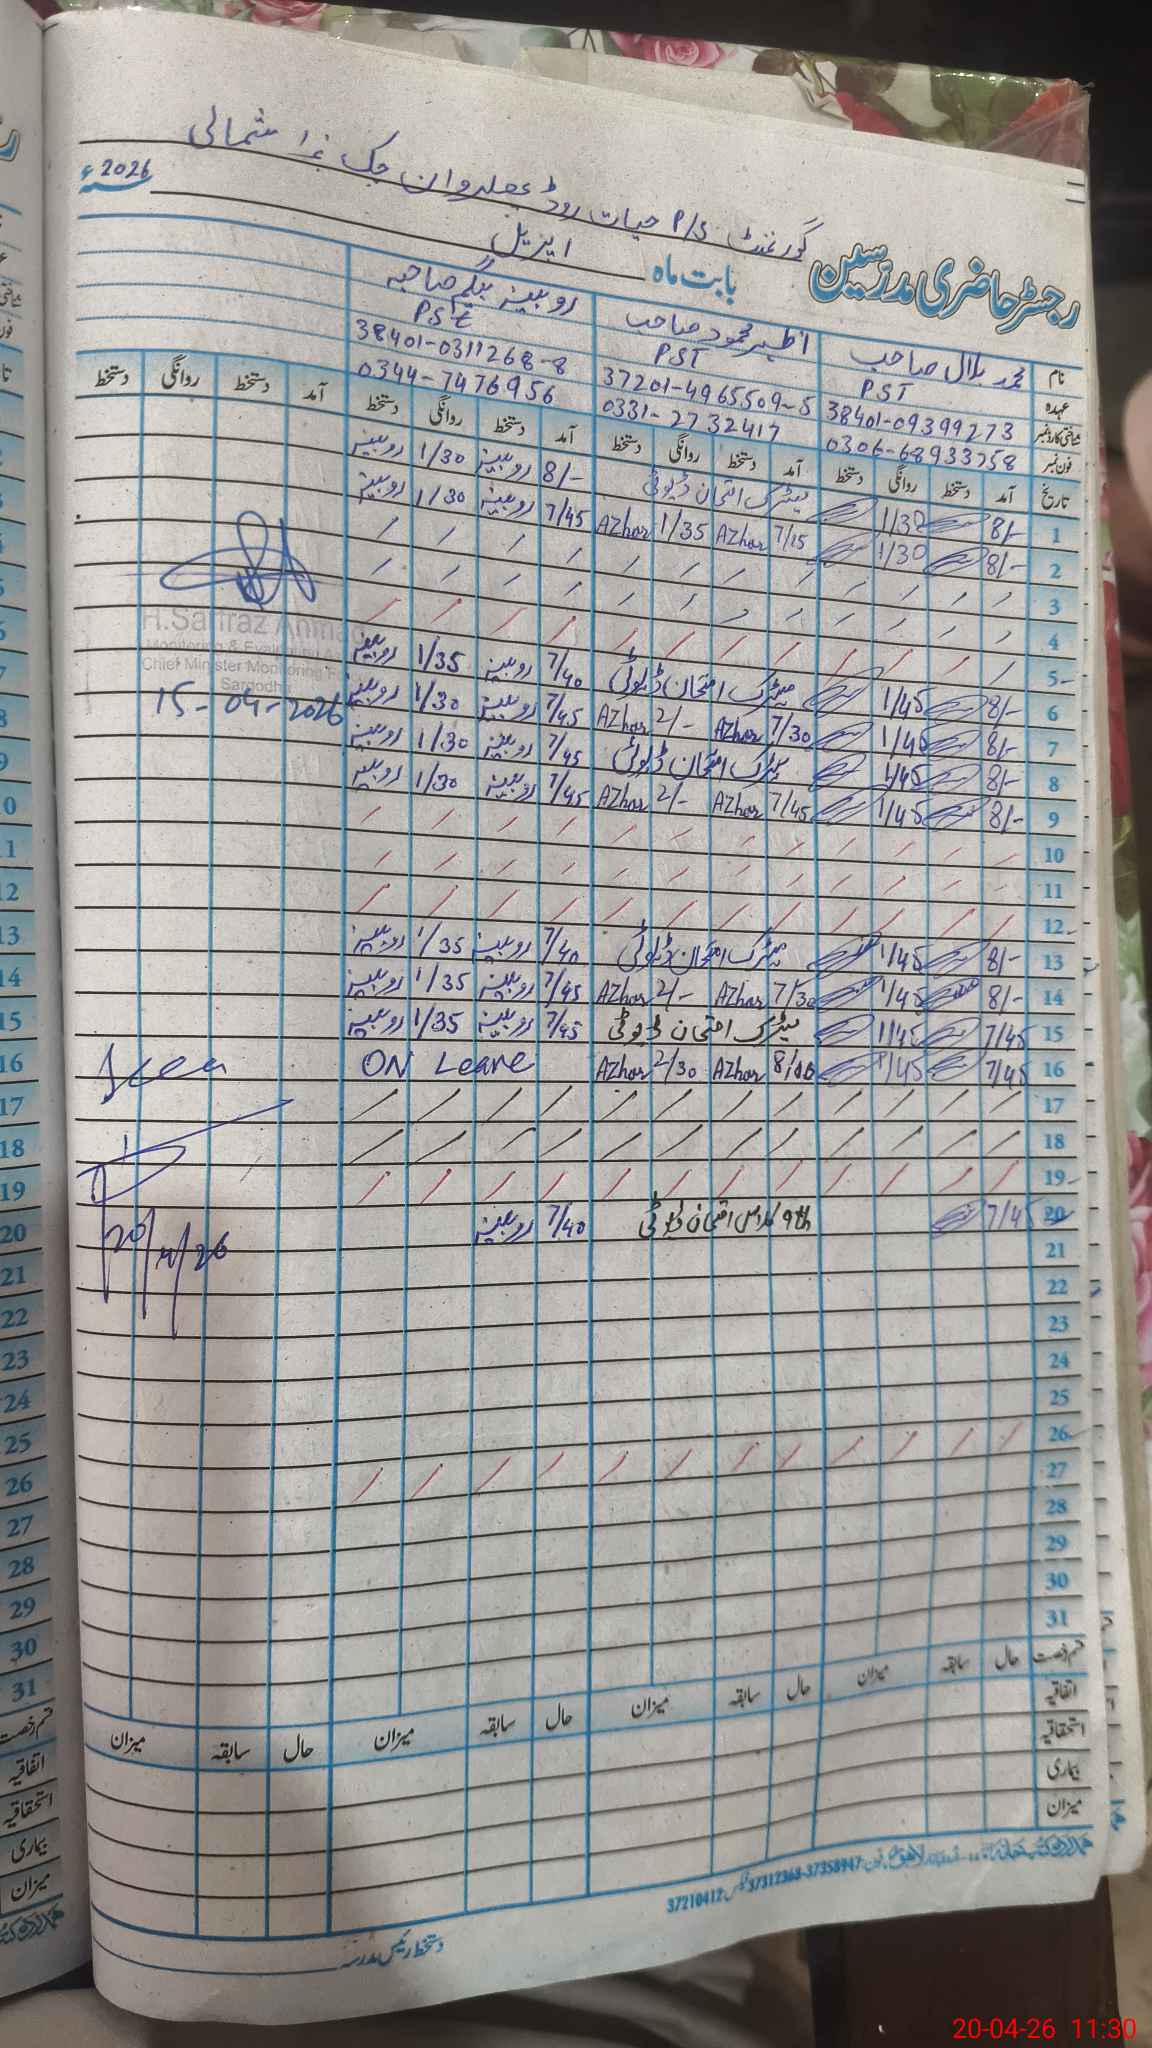 گورنمنٹ P/S حیات روڈ بھلروان چک نمبر 1 شمالی
2026ء
رجسٹر حاضری مدرسین بابت ماہ اپریل
نام محمد بلال صاحب اظہر محمود صاحب روبینہ بیگم صاحبہ
عہدہ PST PST PST
شناختی کارڈ نمبر 38401-09399273 37201-4965509-5 38401-0311268-8
فون نمبر 0306-68933758 0331-2732417 0344-7476956
تاریخ آمد دستخط روانگی دستخط آمد دستخط روانگی دستخط آمد دستخط روانگی دستخط آمد دستخط روانگی دستخط
1 8/- 1/30 میٹرک امتحان ڈیوٹی 8/- روبینہ 1/30 روبینہ
2 8/- 1/30 7/15 Azhar 1/35 Azhar 7/45 روبینہ 1/30 روبینہ
3
4
5
6 8/- 1/45 میٹرک امتحان ڈیوٹی 7/40 روبینہ 1/35 روبینہ
7 8/- 1/45 7/30 Azhar 2/- Azhar 7/45 روبینہ 1/30 روبینہ
8 8/- 1/45 میٹرک امتحان ڈیوٹی 7/45 روبینہ 1/30 روبینہ
9 8/- 1/45 7/45 Azhar 2/- Azhar 7/45 روبینہ 1/30 روبینہ
10
11
12
13 8/- 1/45 میٹرک امتحان ڈیوٹی 7/40 روبینہ 1/35 روبینہ
14 8/- 1/45 7/30 Azhar 2/- Azhar 7/45 روبینہ 1/35 روبینہ
15 7/45 1/45 میٹرک امتحان ڈیوٹی 7/45 روبینہ 1/35 روبینہ
16 7/45 1/45 8/00 Azhar 2/30 Azhar ON Leave
17
18
19
20 7/45 9th کلاس امتحان ڈیوٹی 7/40 روبینہ
21
22
23
24
25
26
27
28
29
30
31
H.Sarfraz Ahmad
Monitoring & Evaluation
Chief Minister Monitoring
Sargodha
15-04-2026
Seen
20/4/26
قسم رخصت حال سابقہ میزان حال سابقہ میزان حال سابقہ میزان حال سابقہ میزان
اتفاقیہ
استحقاقیہ
بیماری
میزان
37210412 37312368-37358947
دستخط رئیس مدرسہ
12
13
14
15
16
17
18
19
20
21
22
23
24
25
26
27
28
29
30
31
قسم رخصت
اتفاقیہ
استحقاقیہ
بیماری
میزان
20-04-26 11:30